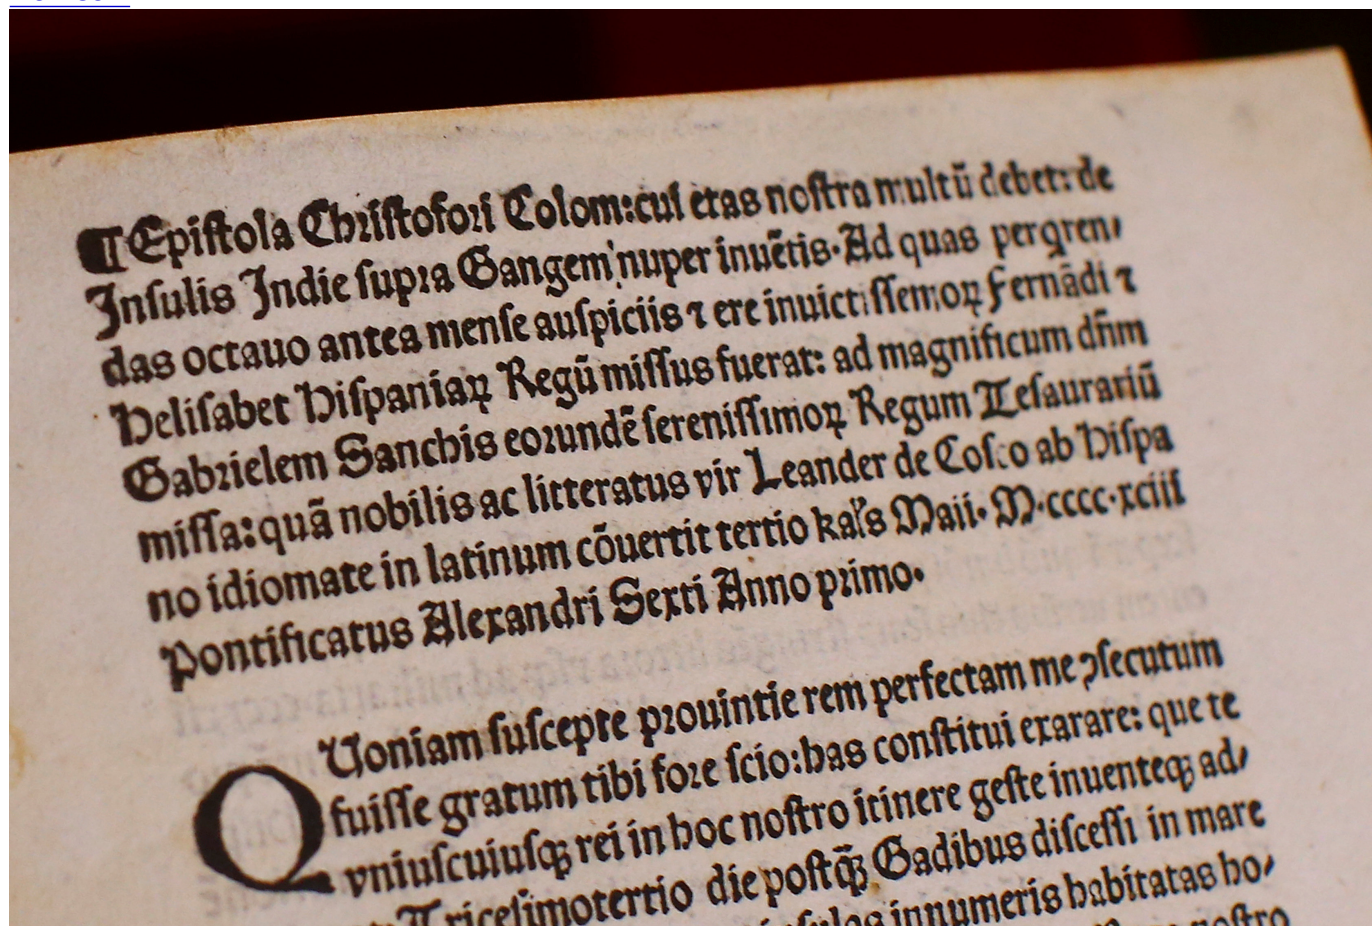 ¶ Epiſtola Chriſtofori Colom: cui etas noſtra multū debet: de
Inſulis Indie ſupra Gangem nuper inuētis. Ad quas perqren/
das octauo antea menſe auſpiciis ⁊ ere inuictiſſemoꝝ Fernādi ⁊
Heliſabet Hiſpaniaꝝ Regū miſſus fuerat: ad magnificum dn̄m
Gabrielem Sanchis eorundē ſereniſſimoꝝ Regum Teſaurariū
miſſa: quā nobilis ac litteratus vir Leander de Coſco ab Hiſpa
no idiomate in latinum cōuertit tertio kal's Maii. M.cccc.xciii
Pontificatus Alexandri Sexti Anno primo.
QUoniam ſuſcepte prouintie rem perfectam me ꝯſecutum
fuiſſe gratum tibi fore ſcio: has conſtitui exarare: que te
vniuſcuiuſqꝫ rei in hoc noſtro itinere geſte inuenteqꝫ ad/
Triceſimotertio die poſtqꝫ̄ Gadibus diſceſſi in mare
innumeris habitatas ho/
noſtro